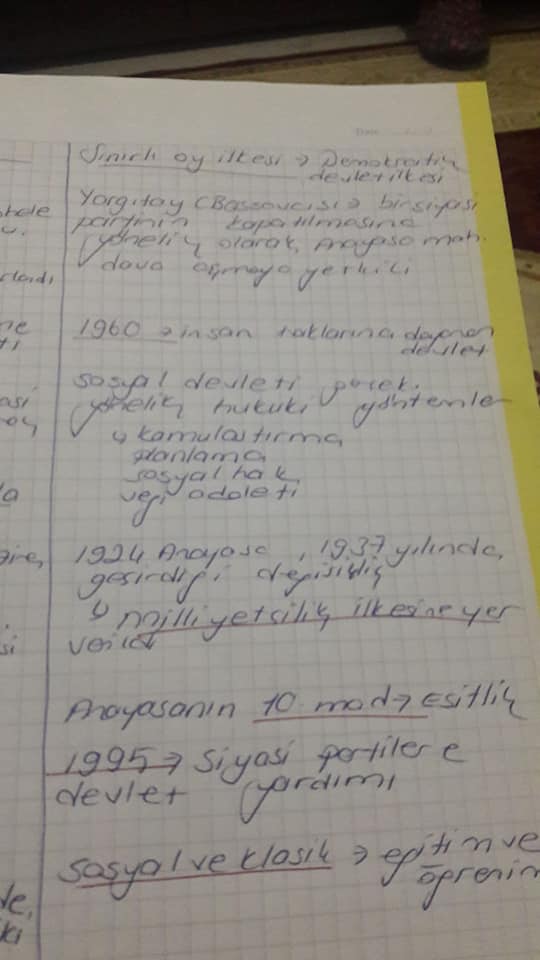 Date
Sınırlı oy ilkesi → Demokratik
devlet ilkesi
Yargıtay C Başsavcısı → bir siyasi
partinin kapatılmasına
yönelik olarak, Anayasa mah.
dava açmaya yetkili
1960 → insan haklarına dayanan
devlet
sosyal devleti gerçek.
yönelik hukuki yöntemler
↳ kamulaştırma
planlama
sosyal hak
vergi adaleti
1924 Anayasa, 1937 yılında,
geçirdiği değişiklik
↳ milliyetçilik ilkesine yer
verildi
Anayasanın 10. mad → Eşitlik
1995 → Siyasi partilere
devlet yardımı
Sosyal ve klasik → eğitim ve
öğrenim